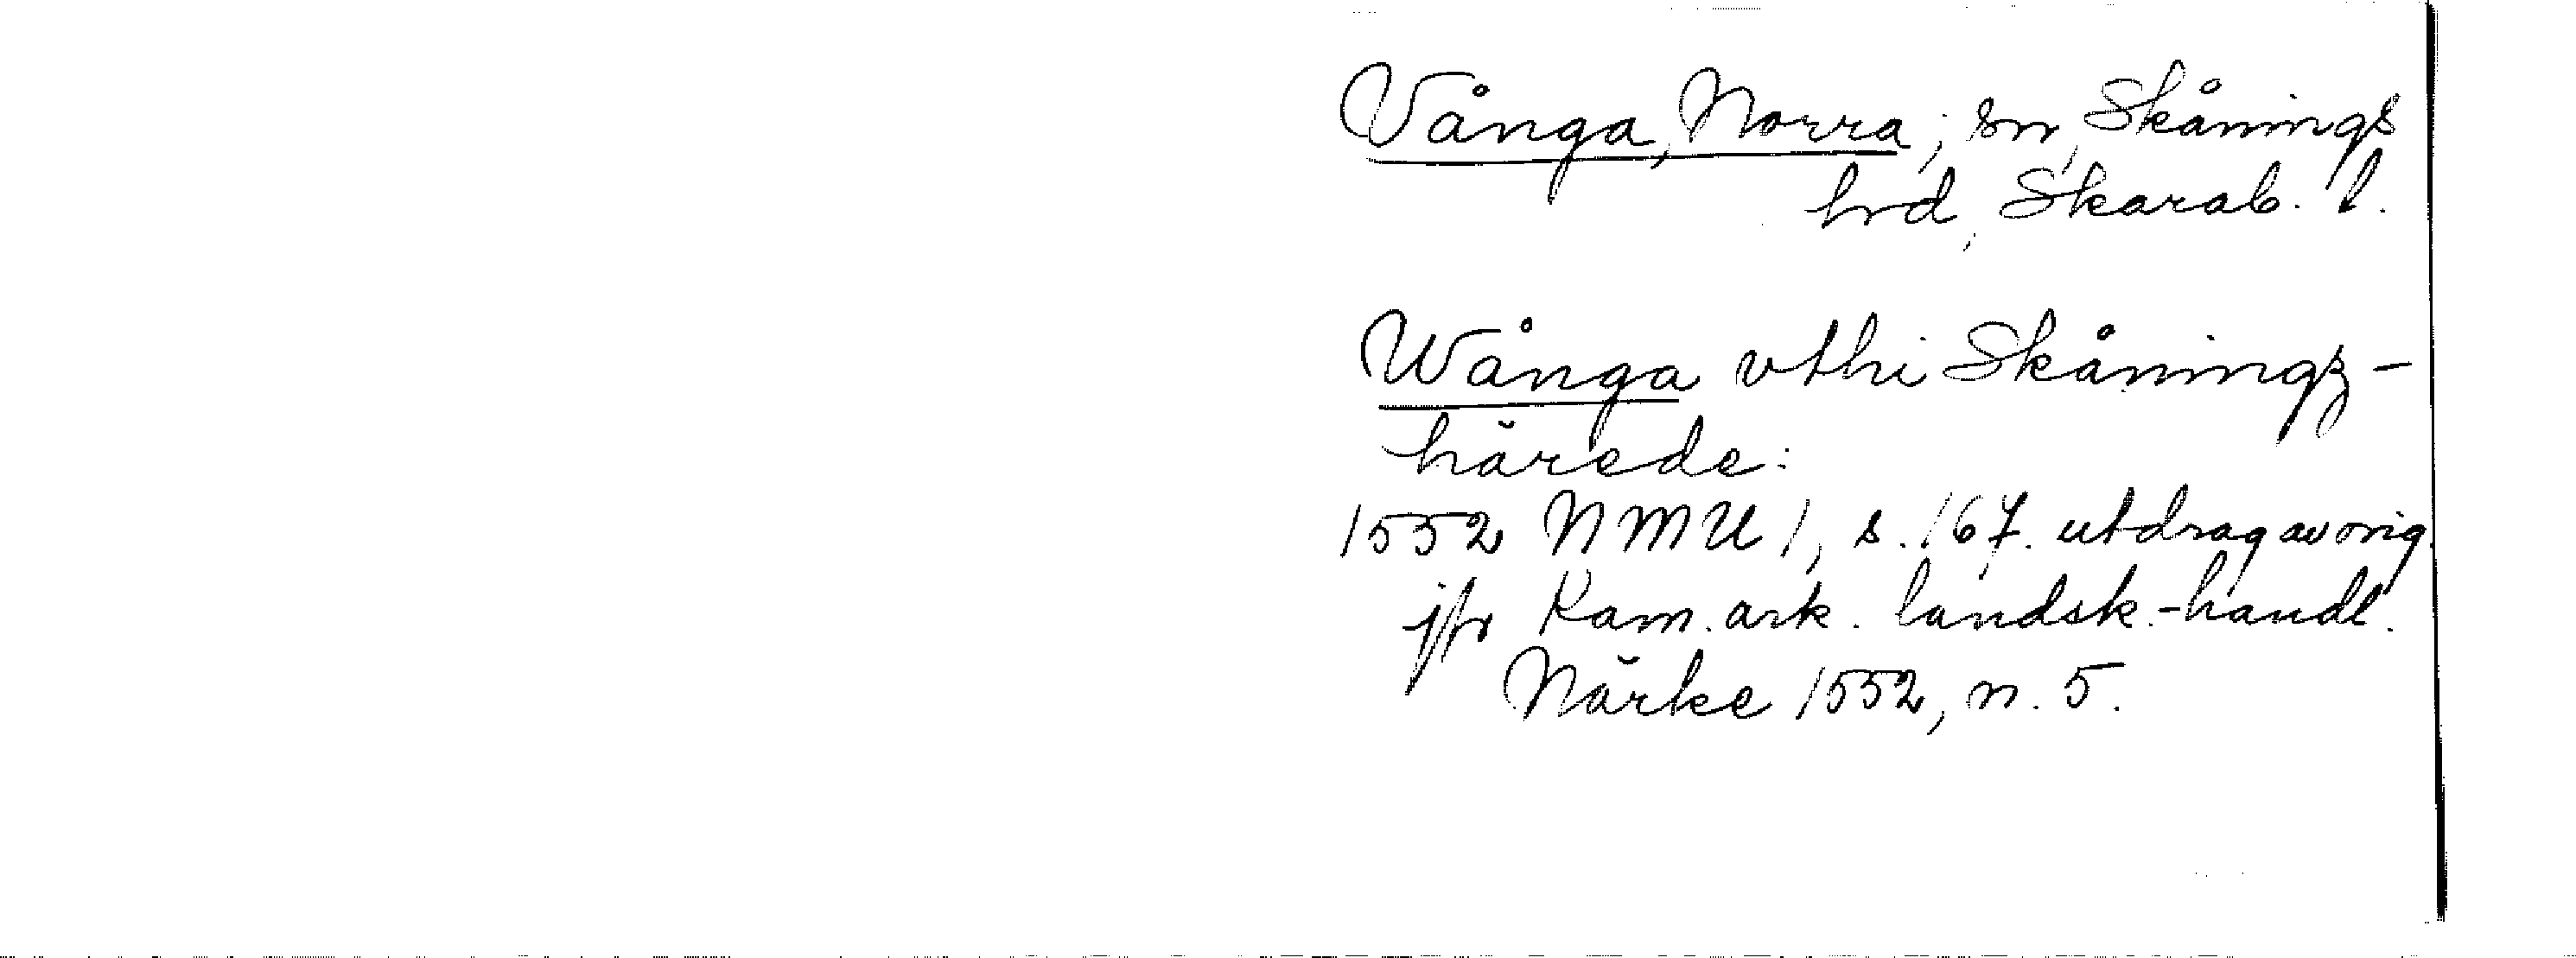 Vånga, Norra; sn, Skånings
hrd, Skarab. l.
Wånga vthi Skåningz-
härede:
1552 NMU 1, s. 167. utdrag av orig.
jfr Kam. ark. landsk.-handl.
Närke 1552, n. 5.